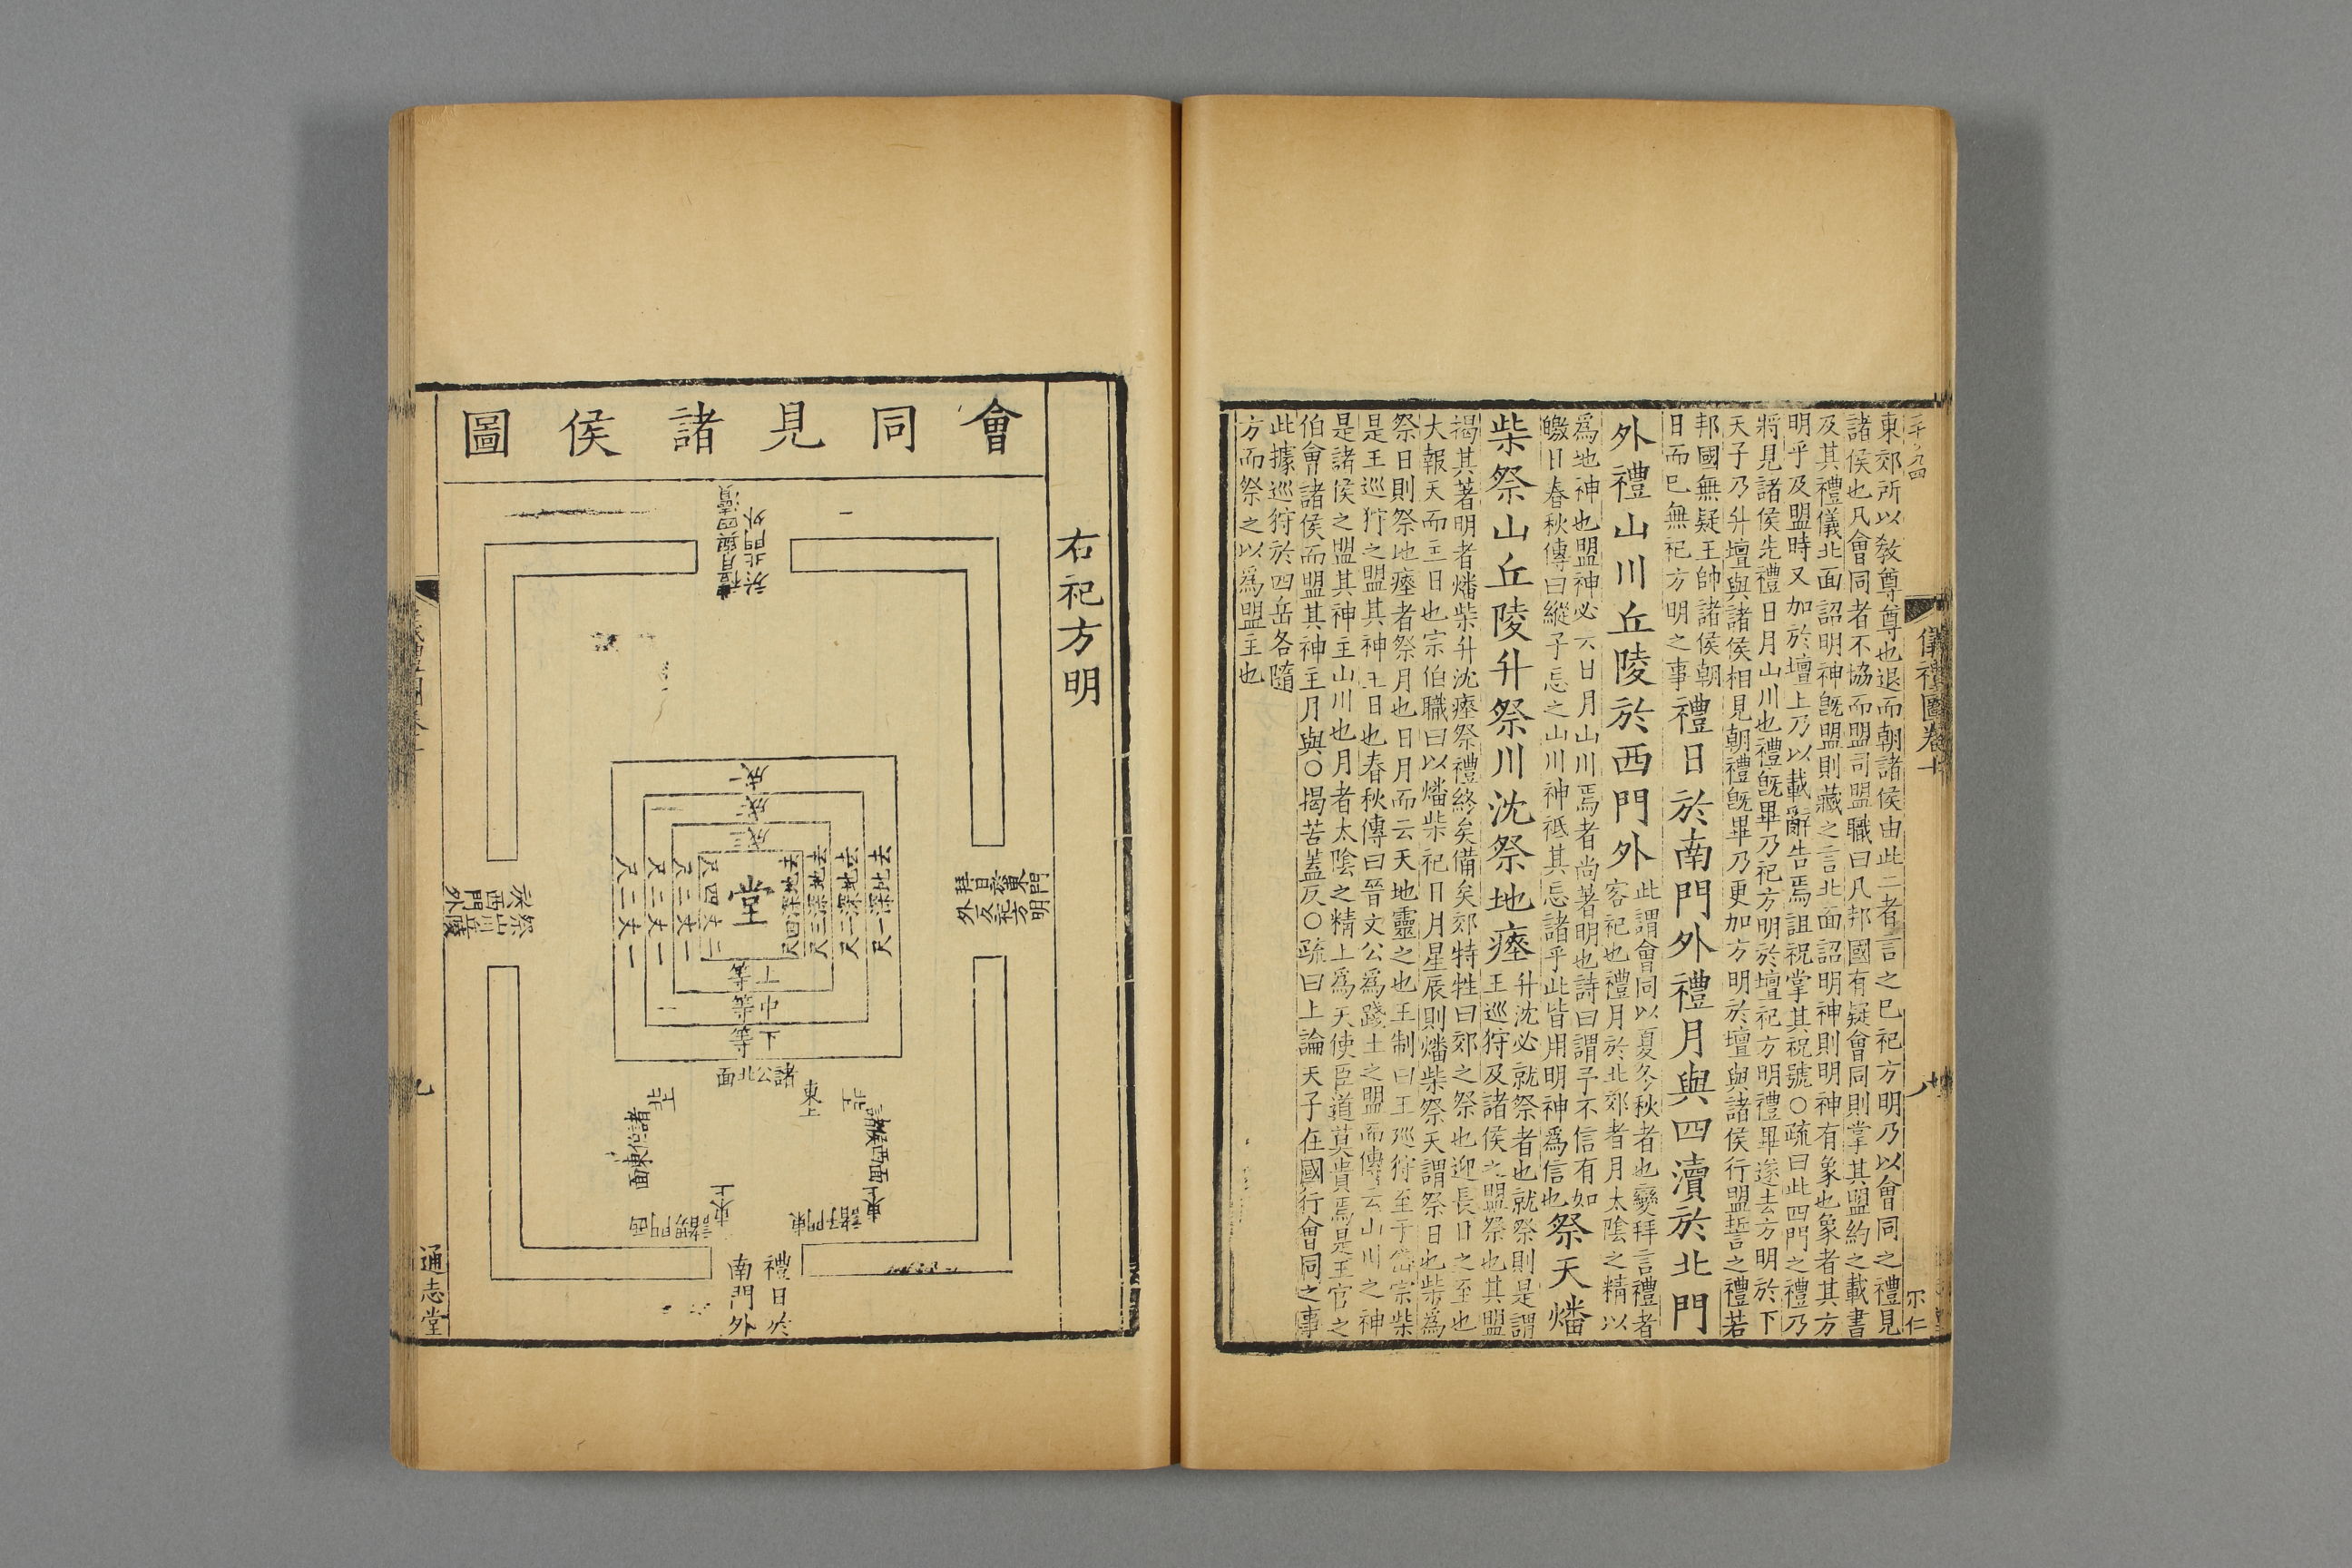 儀禮圖卷十
尒仁
東郊所以敎尊尊也退而朝諸侯由此二者言之巳祀方明乃以會同之禮見
諸侯也凡會同者不協而盟司盟職曰凡邦國有疑會同則掌其盟約之載書
及其禮儀北面詔明神旣盟則藏之言北面詔明神則明神有象也象者其方
明乎及盟時又加於壇上乃以載辭告焉詛祝掌其祝號○疏曰此四門之禮乃
將見諸侯先禮日月山川也禮旣畢乃祀方明於壇祀方明禮畢遂去方明於下
天子乃升壇與諸侯相見朝禮旣畢乃更加方明於壇與諸侯行盟誓之禮若
邦國無疑王帥諸侯朝
日而巳無祀方明之事
禮日於南門外禮月與四瀆於北門
外禮山川丘陵於西門外
此謂會同以夏冬秋者也變拜言禮者
客祀也禮月於北郊者月太陰之精以
爲地神也盟神必云日月山川焉者尚著明也詩曰謂予不信有如
皦日春秋傳曰縱子忘之山川神祗其忘諸乎此皆用明神爲信也
祭天燔
柴祭山丘陵升祭川沈祭地瘞
升沈必就祭者也就祭則是謂
王巡狩及諸侯之盟祭也其盟
褐其著明者燔柴升沈瘞祭禮終矣備矣郊特牲曰郊之祭也迎長日之至也
大報天而主日也宗伯職曰以燔柴祀日月星辰則燔柴祭天謂祭日也柴爲
祭日則祭地瘞者祭月也日月而云天地靈之也王制曰王巡狩至于岱宗柴
是王巡狩之盟其神主日也春秋傳曰晉文公爲踐土之盟而傳云山川之神
是諸侯之盟其神主山川也月者太陰之精上爲天使臣道莫貴焉是王官之
伯會諸侯而盟其神主月與○揭苦蓋反○疏曰上論天子在國行會同之事
此據巡狩於四岳各隨
方而祭之以爲盟主也
右祀方明
會同見諸侯圖
禮月與四瀆
於北門外
拜日於東門
外反祀方明
祭山川丘陵
於西門外
禮日於
南門外
一成
二成
三成
堂
去地一深尺
去地二深尺
去地三深尺
去地四深尺
二丈四尺
二丈二尺
一丈二尺
一丈二尺
下等
中等
上等
諸公北面
東上
諸侯西面
北上
諸伯東面
北上
諸子門東
東上
諸男門西
東上
九
通志堂